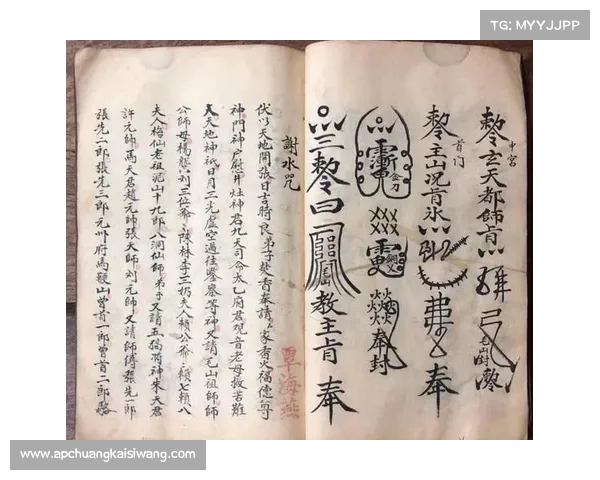 TG: MYYJJPP
中宮
玄天都師肯
首门
主山况肯氷
奉
金刀
奉封
三
教主肯奉
謝水咒
伏以天地開張日吉時良弟子焚香奉請家香火福德尊
神門神戶井灶神君九天司命太乙府君觀音老母救苦難
天地神祇日月三光虛空過往鑒察等神又請毛山祖師師
公師母楊三位爺陳林李三夫人賴公爺賴七賴八
夫人梅仙老祖泥山十九郎八洞仙師弟子又請五猖將神朱天君
許元帥馬天君趙元帥張天師刘元帥又請師傅張先一郎
張先二郎張先三郎元州府馬觀山曾首一郎曾首二郎駱
覃海燕
www.apchuangkaisiwang.com